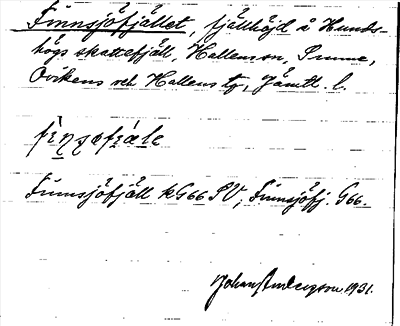 Finnsjöfjället, fjällhöjd å Hunds-
högs skattefjäll, Hallens sn,
Ovikens och Hallens tg, Jämtl. l.
Finnsjöfjäll kG66 SV, Finnsjöfj. G66.
Johan Anderzson 1931.